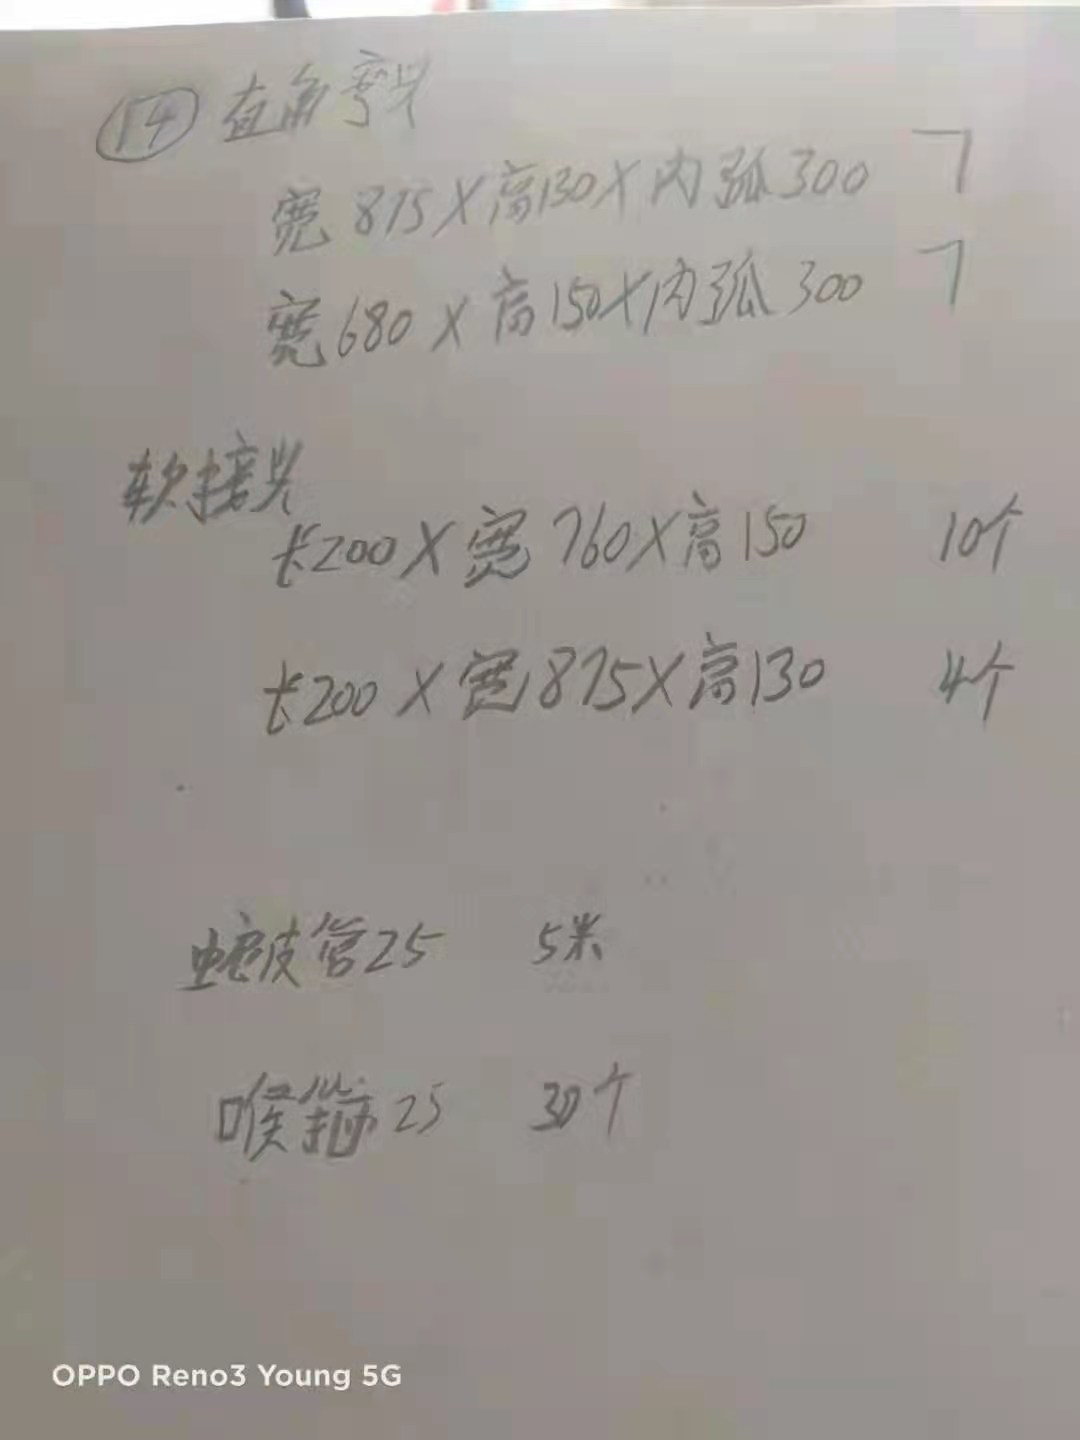 ⑭ 直角弯头
宽 875×高130×内弧300 ㄱ
宽680×高150×内弧300 ㄱ
软接头
长200×宽760×高150 10个
长200×宽875×高130 4个
蛇皮管25 5米
喉箍25 30个
OPPO Reno3 Young 5G